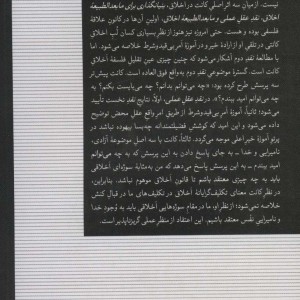 نیست. از میان سه اثر اصلی کانت در اخلاق، بنیانگذاری برای مابعدالطبیعهٔ
اخلاق، نقدِ عقلِ عملی، و مابعدالطبیعهٔ اخلاق، اولینِ آن‌ها در کانون علاقهٔ
فلسفی بوده و هست. حتی امروزه نیز هنوز از نظرِ بسیاری کسان لُبِ اخلاقِ
کانتی در تلقیِ او از ارادهٔ خیر و در آموزهٔ امرِ بی‌قیدوشرط خلاصه می‌شود. اما
با مطالعهٔ نقدِ دوم آشکار می‌شود که چنین چیزی عینِ تقلیلِ فلسفهٔ اخلاقِ
کانت است. گسترهٔ موضوعیِ نقدِ دوم به‌واقع فوق‌العاده است. کانت پیش‌تر
سه پرسش طرح کرده بود: «چه می‌توانم بدانم؟ چه می‌بایست بکنم؟ به
چه می‌توانم امید ببندم؟». در نقدِ عقلِ عملی، اولاً، نتایجِ نقدِ نخست تأیید
می‌شود؛ ثانیاً، آموزهٔ امرِ بی‌قیدوشرط از طریقِ امرِ واقعِ عقلِ محض توضیح
داده می‌شود و این امید که کوششِ فضیلتمندانه چه‌بسا بیهوده نباشد در
پرتوِ آموزهٔ خیرِ اعلی موجه می‌گردد. ثالثاً، کانت با سه اصلِ موضوعهٔ آزادی،
نامیرایی و خدا ـ به جای پاسخ دادن به این پرسش که به چه می‌توانم
امید ببندم ـ به این پرسش پاسخ می‌دهد که منِ به‌مثابهٔ سوژه‌ای اخلاقی
باید به چه چیزی معتقد باشم تا قانونِ اخلاق موهوم نباشد. بنابراین،
در نظرِ کانت معنای تکلیف‌گرایانهٔ اخلاق در تکلیف‌های ما در قبالِ کنش
خلاصه نمی‌شود؛ از نظرِ او، ما در مقامِ سوژه‌هایی اخلاقی باید به وجودِ خدا
و نامیراییِ نفس معتقد باشیم. این اعتقاد از منظرِ عملی گریزناپذیر است.